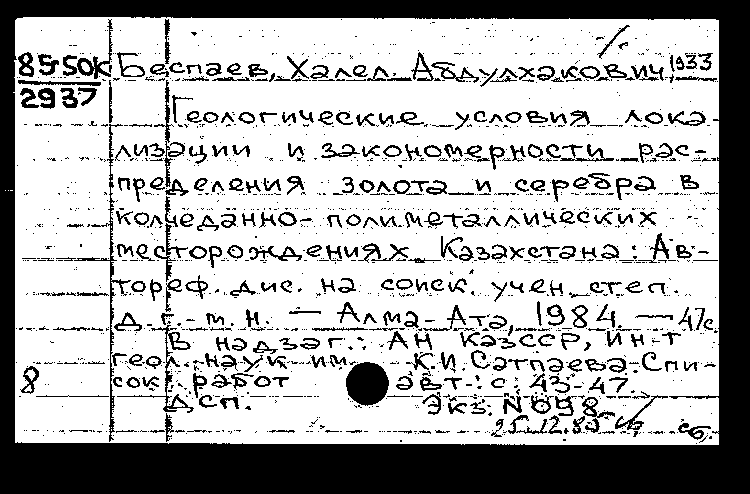 85-5ОК Беспаев, Халел Абдулхакович, 1933
2937
Геологические условия лока-
лизации и закономерности рас-
пределения золота и серебра в
колчеданно-полиметаллических
месторождениях Казахстана: Ав-
тореф. дис. на соиск. учен. степ.
д. г.-м. н. — Алма-Ата, 1984. — 47с
В надзаг.: АН КазССР, Ин-т
геол. наук им. К.И. Сатпаева. Спи-
8 сок работ авт.: с. 43-47.
ДСП. Экз. N 098
25.12.85 сб.